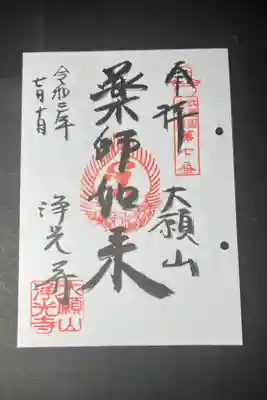 奉拝
大願山
薬師如来
令和二年
七月十日
浄光寺
第七番
大願山
浄光寺